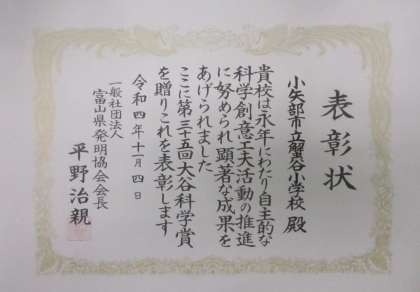 表彰状
小矢部市立蟹谷小学校 殿
貴校は永年にわたり自主的な
科学創意工夫活動の推進
に努められ顕著な成果を
あげられました
ここに第三十五回大谷科学賞
を贈りこれを表彰します
令和四年十一月四日
一般社団法人
富山県発明協会会長
平野治親